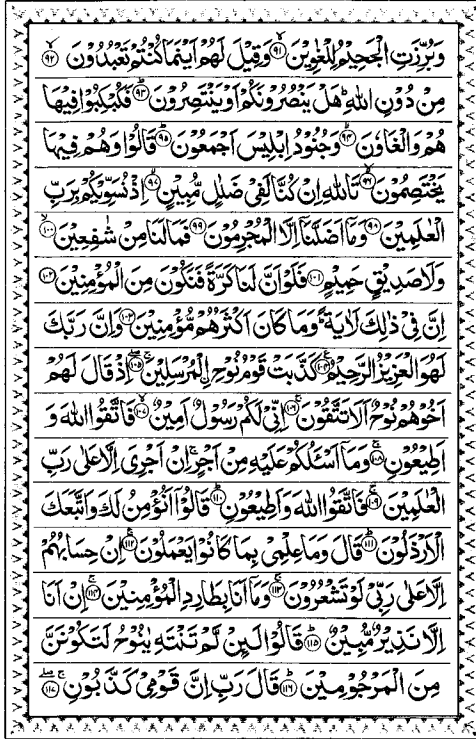 وَبُرِّزَتِ الْجَحِيْمُ لِلْغٰوِيْنَ ﴿۹۱﴾ وَقِيْلَ لَهُمْ اَيْنَمَا كُنْتُمْ تَعْبُدُوْنَ ﴿۹۲﴾
مِنْ دُوْنِ اللّٰهِ ؕ هَلْ يَنْصُرُوْنَكُمْ اَوْ يَنْتَصِرُوْنَ ﴿۹۳﴾ فَكُبْكِبُوْا فِيْهَا
هُمْ وَالْغَاوٗنَ ﴿۹۴﴾ وَجُنُوْدُ اِبْلِيْسَ اَجْمَعُوْنَ ﴿۹۵﴾ قَالُوْا وَهُمْ فِيْهَا
يَخْتَصِمُوْنَ ﴿۹۶﴾ تَاللّٰهِ اِنْ كُنَّا لَفِيْ ضَلٰلٍ مُّبِيْنٍ ﴿۹۷﴾ اِذْ نُسَوِّيْكُمْ بِرَبِّ
الْعٰلَمِيْنَ ﴿۹۸﴾ وَمَاۤ اَضَلَّنَاۤ اِلَّا الْمُجْرِمُوْنَ ﴿۹۹﴾ فَمَا لَنَا مِنْ شٰفِعِيْنَ ﴿۱۰۰﴾
وَلَا صَدِيْقٍ حَمِيْمٍ ﴿۱۰۱﴾ فَلَوْ اَنَّ لَنَا كَرَّةً فَنَكُوْنَ مِنَ الْمُؤْمِنِيْنَ ﴿۱۰۲﴾
اِنَّ فِيْ ذٰلِكَ لَاٰيَةً ؕ وَمَا كَانَ اَكْثَرُهُمْ مُّؤْمِنِيْنَ ﴿۱۰۳﴾ وَاِنَّ رَبَّكَ
لَهُوَ الْعَزِيْزُ الرَّحِيْمُ ﴿۱۰۴﴾ كَذَّبَتْ قَوْمُ نُوْحِ ۨالْمُرْسَلِيْنَ ﴿۱۰۵﴾ اِذْ قَالَ لَهُمْ
اَخُوْهُمْ نُوْحٌ اَلَا تَتَّقُوْنَ ﴿۱۰۶﴾ اِنِّيْ لَكُمْ رَسُوْلٌ اَمِيْنٌ ﴿۱۰۷﴾ فَاتَّقُوا اللّٰهَ وَ
اَطِيْعُوْنِ ﴿۱۰۸﴾ وَمَاۤ اَسْـَٔلُكُمْ عَلَيْهِ مِنْ اَجْرٍ ۚ اِنْ اَجْرِيَ اِلَّا عَلٰى رَبِّ
الْعٰلَمِيْنَ ﴿۱۰۹﴾ فَاتَّقُوا اللّٰهَ وَاَطِيْعُوْنِ ﴿۱۱۰﴾ قَالُوْۤا اَنُؤْمِنُ لَكَ وَاتَّبَعَكَ
الْاَرْذَلُوْنَ ﴿۱۱۱﴾ قَالَ وَمَا عِلْمِيْ بِمَا كَانُوْا يَعْمَلُوْنَ ﴿۱۱۲﴾ اِنْ حِسَابُهُمْ
اِلَّا عَلٰى رَبِّيْ لَوْ تَشْعُرُوْنَ ﴿۱۱۳﴾ وَمَاۤ اَنَا بِطَارِدِ الْمُؤْمِنِيْنَ ﴿۱۱۴﴾ اِنْ اَنَا
اِلَّا نَذِيْرٌ مُّبِيْنٌ ﴿۱۱۵﴾ قَالُوْا لَىِٕنْ لَّمْ تَنْتَهِ يٰنُوْحُ لَتَكُوْنَنَّ
مِنَ الْمَرْجُوْمِيْنَ ﴿۱۱۶﴾ قَالَ رَبِّ اِنَّ قَوْمِيْ كَذَّبُوْنِ ﴿۱۱۷﴾